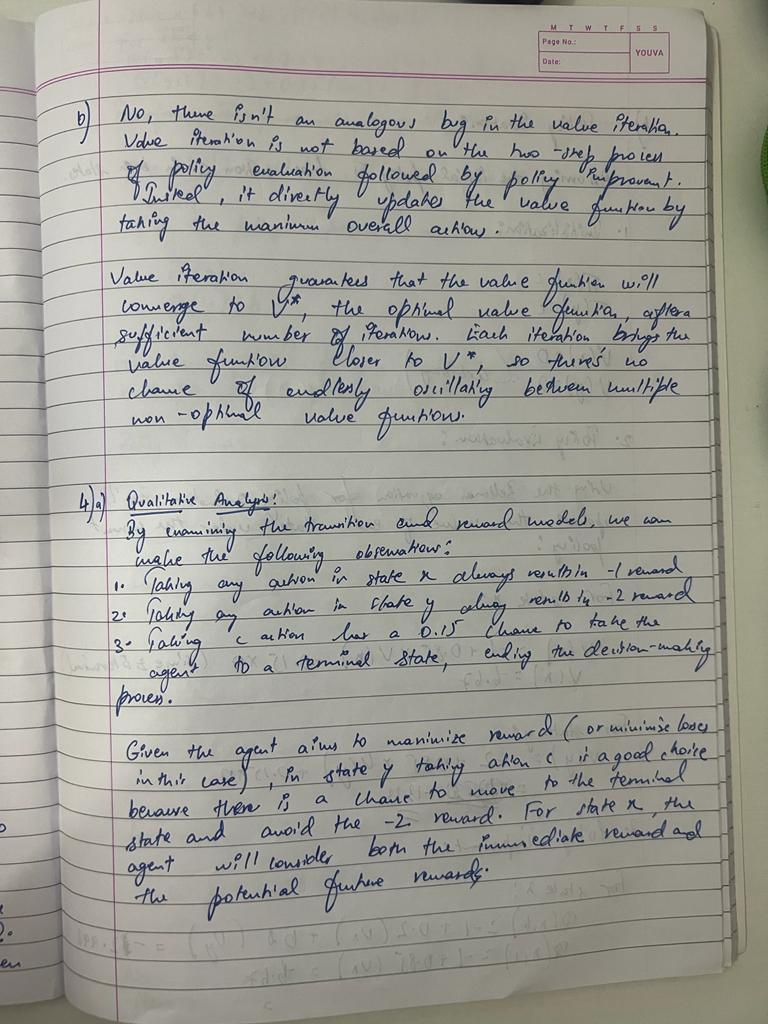 M T W T F S S
Page No.:
Date:
YOUVA
b) No, there isn't an analogous bug in the value iteration.
Value iteration is not based on the two-step process
of policy evaluation followed by policy improvement.
Insted, it directly updates the value function by
taking the maximum overall actions.
Value iteration guarantees that the value function will
converge to V*, the optimal value function, after a
sufficient number of iterations. Each iteration brings the
value function closer to V*, so there's no
chance of endlessly oscillating between multiple
non-optimal value functions.
4) a) Qualitative Analysis:
By examining the transition and reward models, we can
make the following observations:
1. Taking any action in state x always results in -1 reward
2. Taking any action in state y always results in -2 reward
3. Taking c action has a 0.15 chance to take the
agent to a terminal state, ending the decision-making
process.
Given the agent aims to maximize reward (or minimise losses
in this case), in state y taking ation c is a good choice
because there is a chance to move to the terminal
state and avoid the -2 reward. For state x, the
agent will consider both the immediate reward and
the potential future rewards.